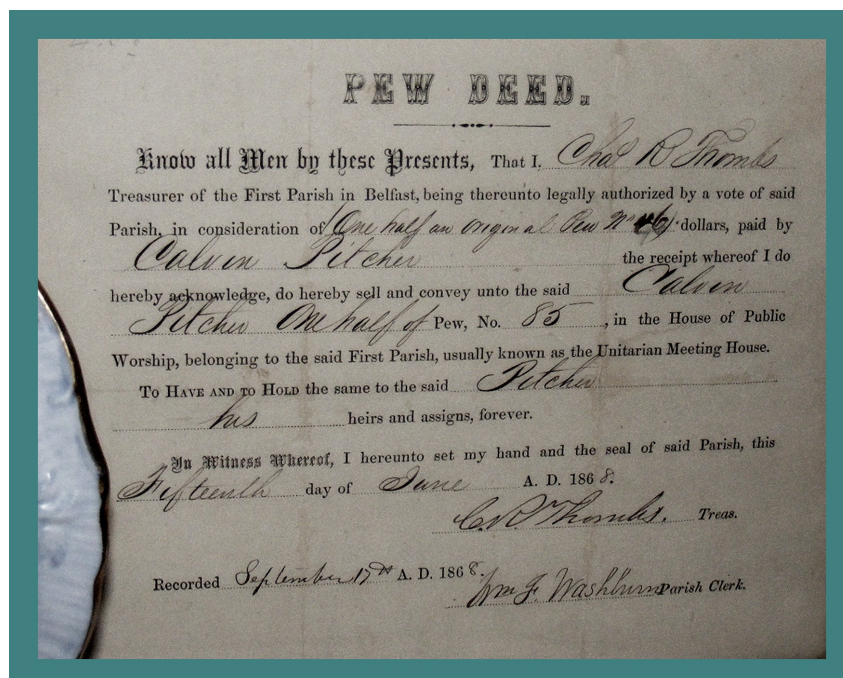 PEW DEED.
Know all Men by these Presents, That I, Chas R Thombs
Treasurer of the First Parish in Belfast, being thereunto legally authorized by a vote of said
Parish, in consideration of (One half an original Pew No 46) dollars, paid by
Calvin Pitcher the receipt whereof I do
hereby acknowledge, do hereby sell and convey unto the said Calvin
Pitcher One half of Pew, No. 85, in the House of Public
Worship, belonging to the said First Parish, usually known as the Unitarian Meeting House.
To Have and to Hold the same to the said Pitcher
his heirs and assigns, forever.
In Witness Whereof, I hereunto set my hand and the seal of said Parish, this
Fifteenth day of June A. D. 1868.
C. R. Thombs. Treas.
Recorded September 17th A. D. 1868.
Wm F. Washburn Parish Clerk.